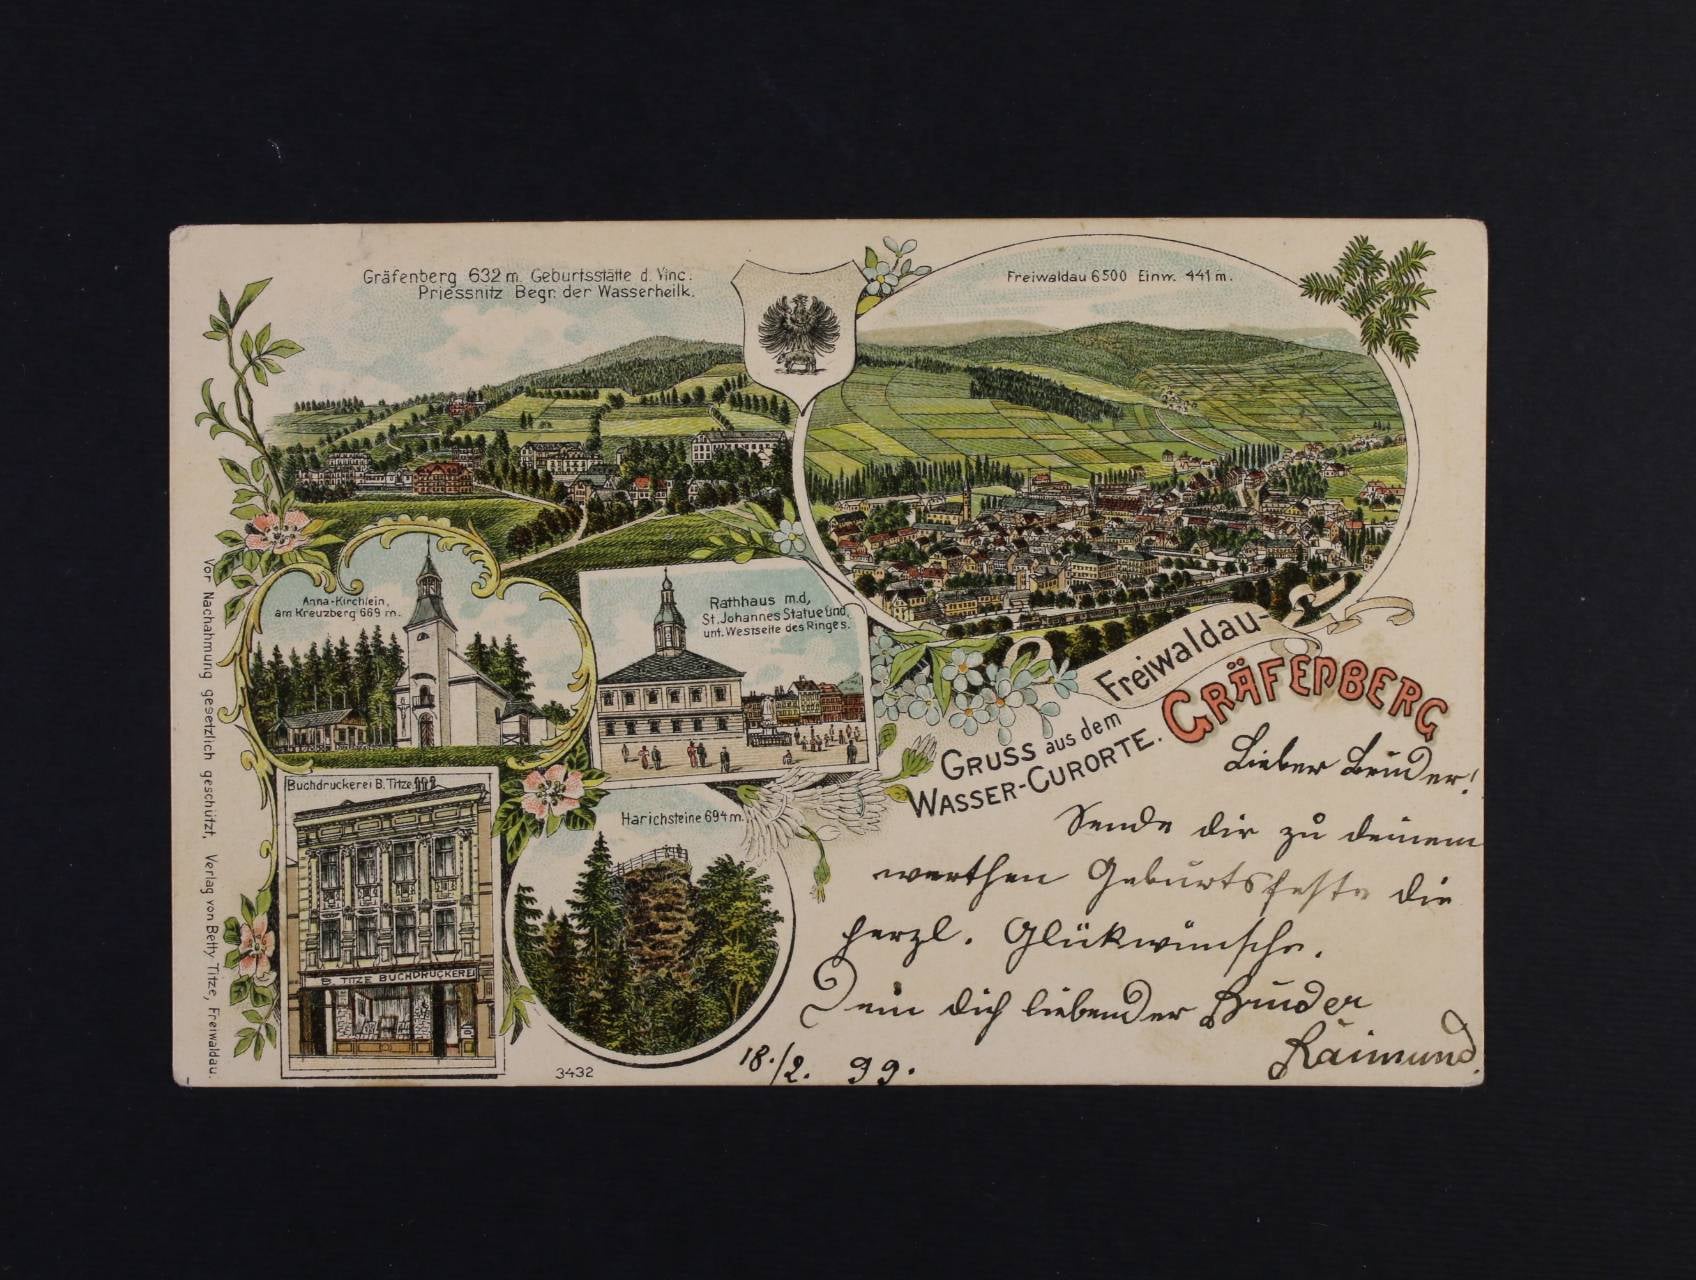 Gräfenberg 632 m. Geburtsstätte d. Vinc.
Priessnitz Begr. der Wasserheilk.
Freiwaldau 6500 Einw. 441 m.
Anna-Kirchlein,
am Kreuzberg 669 m.
Rathhaus m.d,
St. Johannes Statue und
unt. Westseite des Ringes.
Buchdruckerei B. Titze
B. TITZE BUCHDRUCKEREI
Harichsteine 694 m.
GRUSS aus dem
WASSER-CURORTE.
Freiwaldau-
GRÄFENBERG
Lieber Bruder!
Sende dir zu deinem
werthen Geburtsfeste die
herzl. Glückwünsche.
Dein dich liebender Bruder
Raimund.
18./2. 99.
3432
Vor Nachahmung gesetzlich geschützt. Verlag von Betty Titze, Freiwaldau.